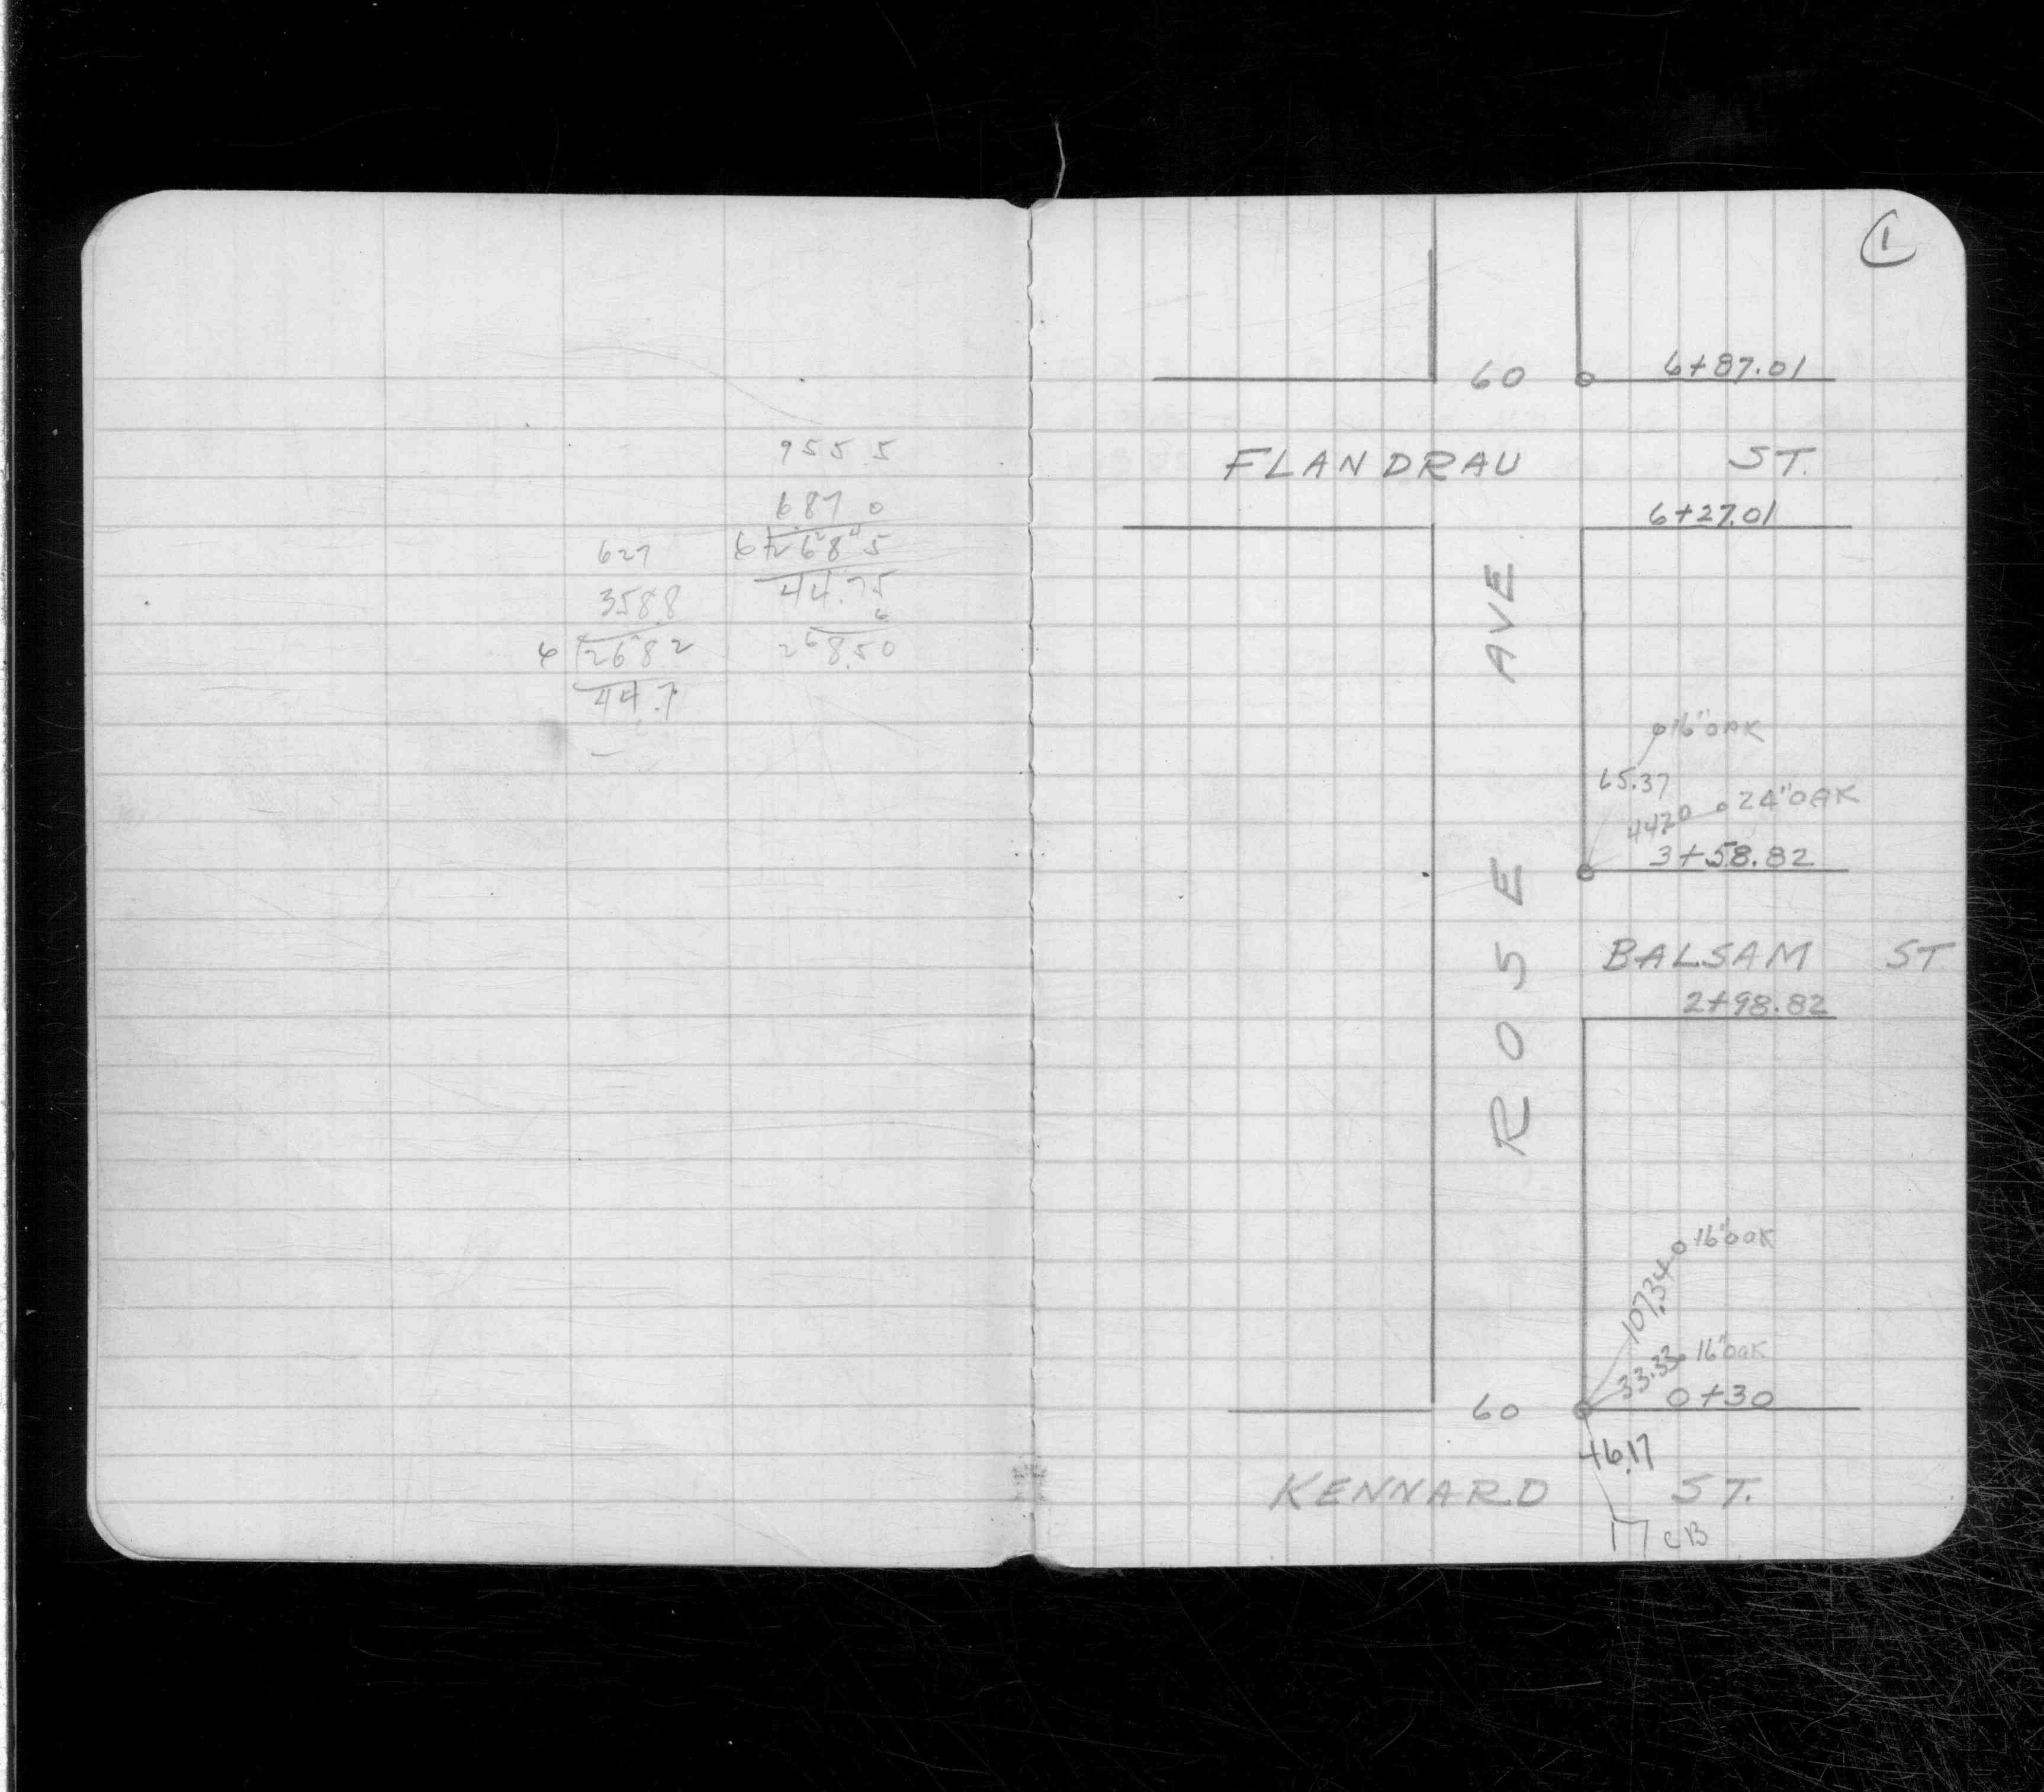 955 5
687 0
6 268 5
44.75
6
268.50
627
358.8
6 268 2
44.7
1
60 6+87.01
FLANDRAU ST.
6+27.01
ROSE AVE
16" OAK
65.37
44.20 24" OAK
3+58.82
BALSAM ST
2+98.82
16" OAK
107.34
33.33 16" OAK
60 0+30
46.17
KENNARD ST.
CB